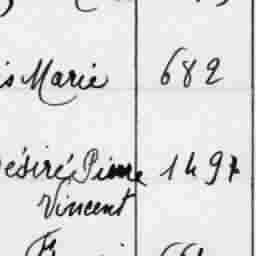 is Marie 682
Désiré Pierre 1497
Vincent